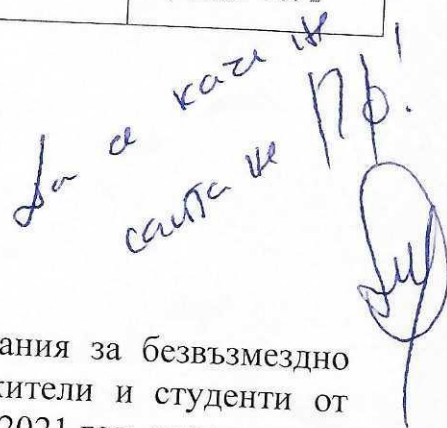 Да се качи на
сайта на ПБ!
ания за безвъзмездно
жители и студенти от
2021 год